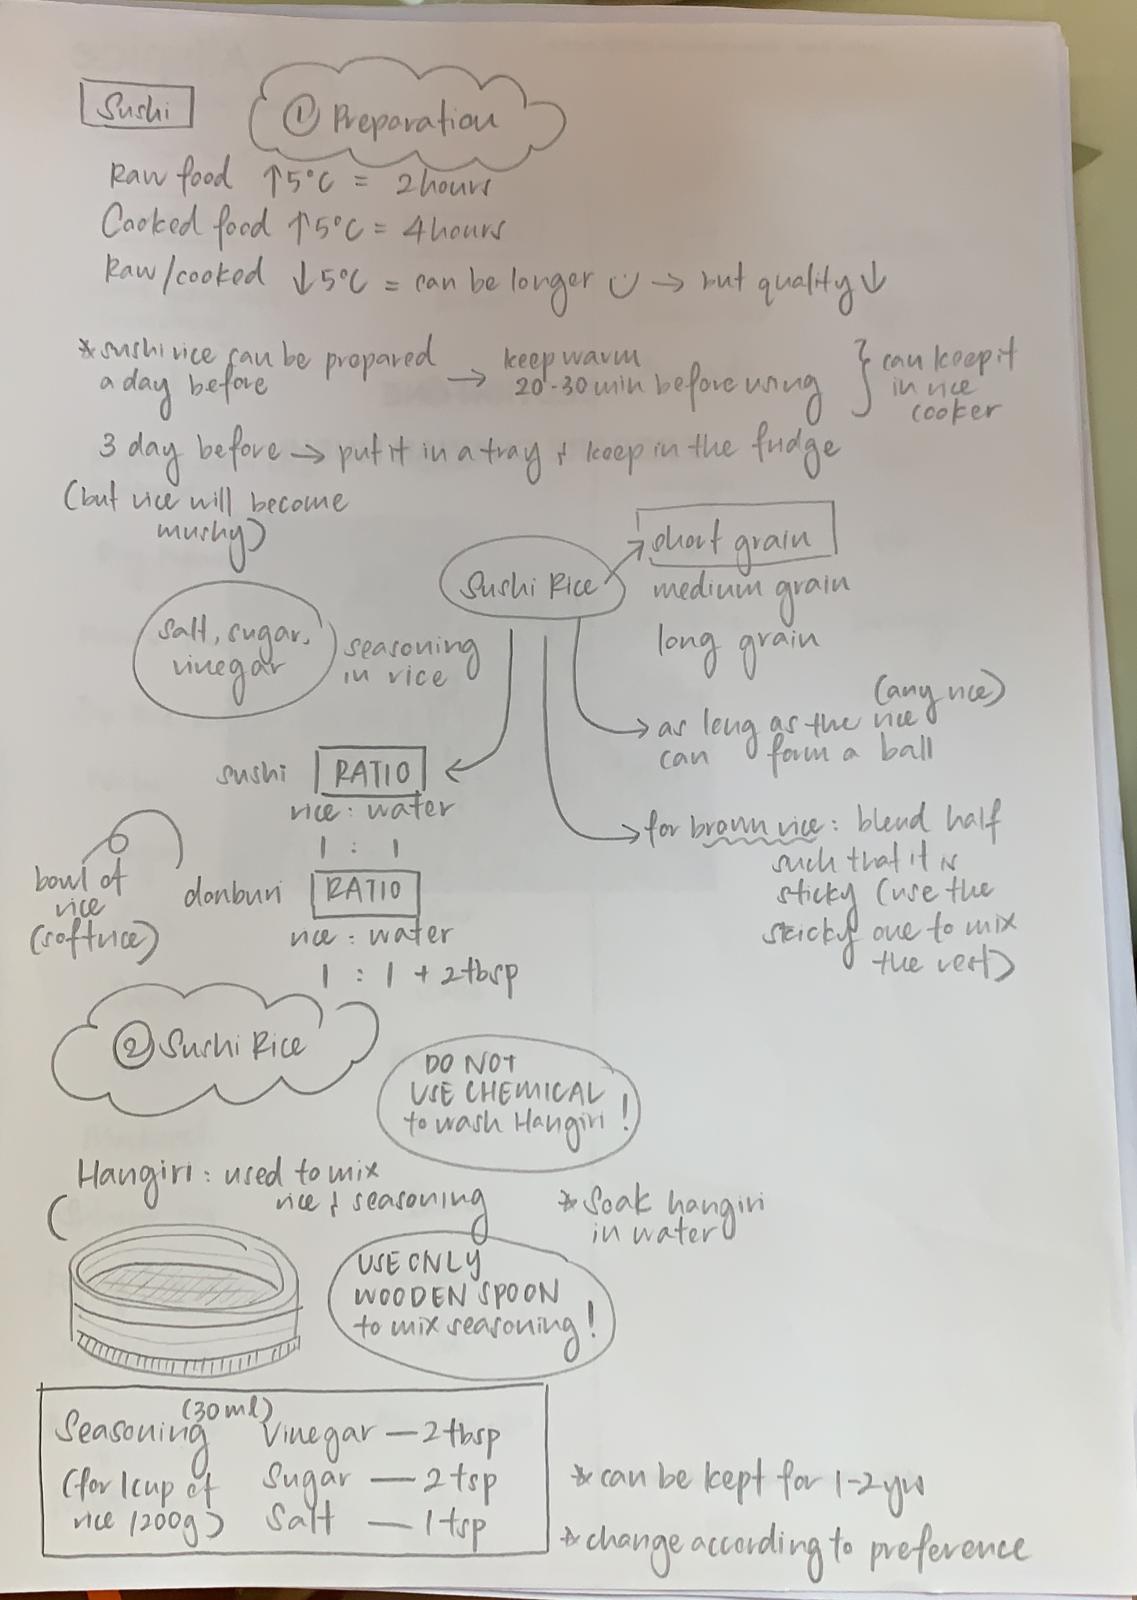 Sushi
① Preparation
Raw food ↑5°C = 2 hours
Cooked food ↑5°C = 4 hours
Raw/cooked ↓5°C = can be longer → but quality ↓
* sushi rice can be prepared
a day before
→ keep warm
20-30 min before using
} can keep it
in rice
cooker
3 day before → put it in a tray & keep in the fridge
(but rice will become
mushy)
Sushi Rice
short grain
medium grain
long grain
salt, sugar,
vinegar
seasoning
in rice
(any rice)
as long as the rice
can form a ball
sushi RATIO
rice : water
1 : 1
for brown rice : blend half
such that it is
sticky (use the
sticky one to mix
the rest)
bowl of
rice
(soft rice)
donburi RATIO
rice : water
1 : 1 + 2tbsp
② Sushi Rice
DO NOT
USE CHEMICAL
to wash Hangiri !
Hangiri : used to mix
rice & seasoning
* Soak hangiri
in water
USE ONLY
WOODEN SPOON
to mix seasoning !
Seasoning
(for 1 cup of
rice /200g)
(30ml)
Vinegar — 2 tbsp
Sugar — 2 tsp
Salt — 1 tsp
* can be kept for 1-2 yrs
* change according to preference